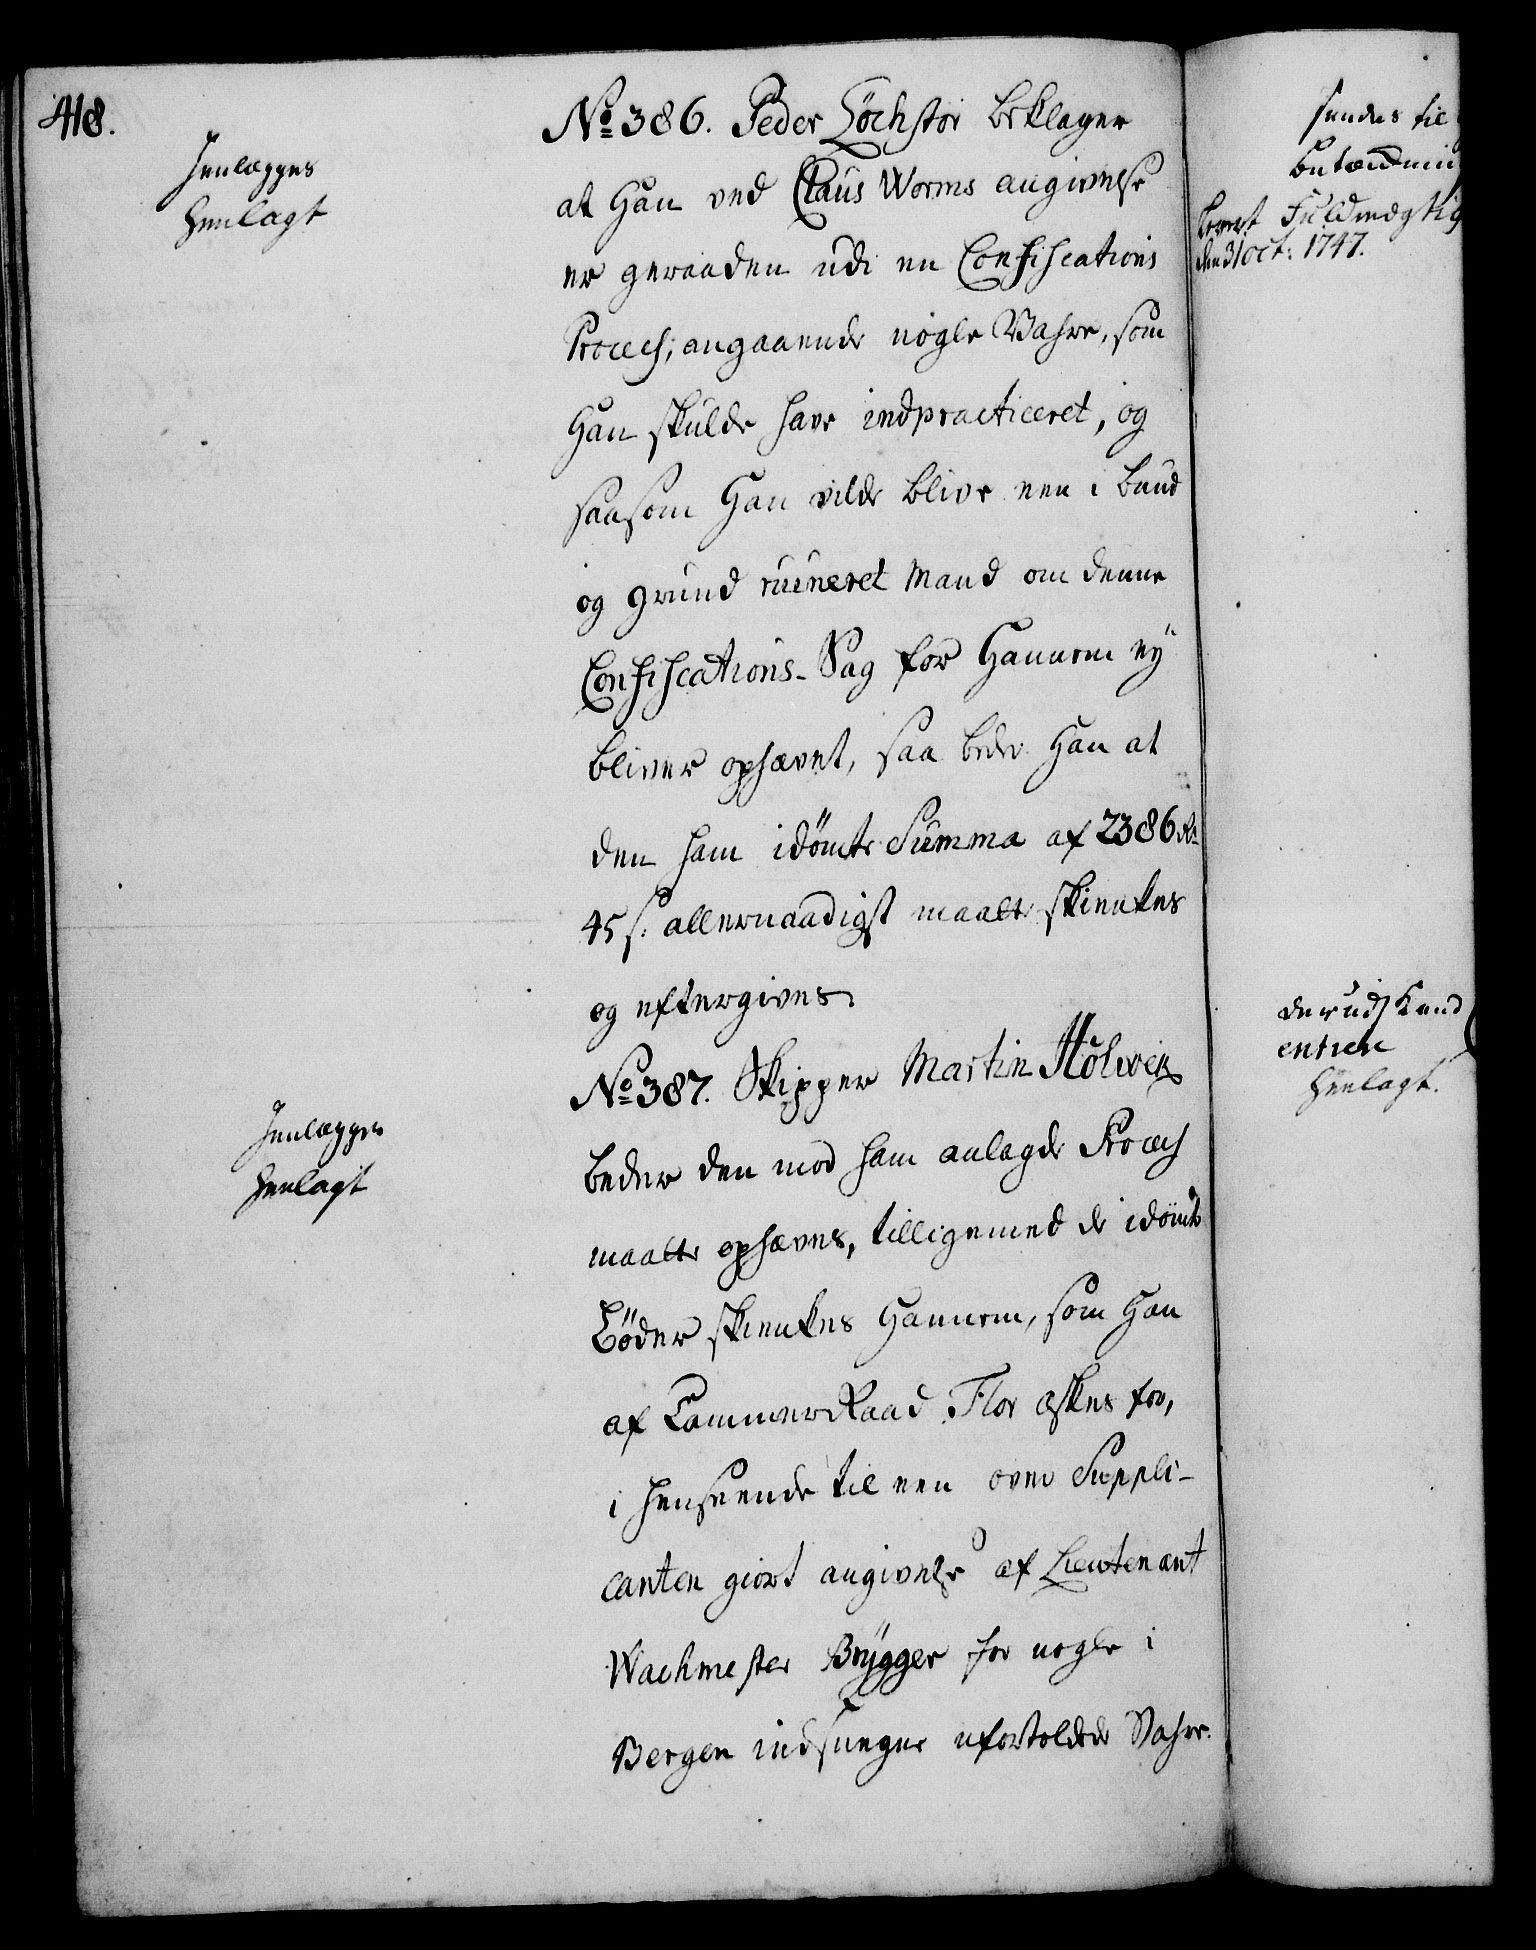 418.
Henlægges
Henlagt
No 386. Peder Löchstör beklager
at Han ved Claus Worms angivelse
er geraaden udi en Confiscations
Process, angaaende nogle Vahre, som
Han skulde have indpracticeret, og
saasom Han vilde blive een i bund
og grund ruineret Mand om denne
Confiscations-Sag for Hannem ey
bliver ophævet, saa beder Han at
den ham idömte Summa af 2386 Rd
45 s: allernaadigst maatte skienkes
og eftergives.
Henlægges
Henlagt
No 387. Skipper Martin Hölwer
beder den mod ham anlagde Process
maatte ophæves, tilligemed de idömte
Böder skienkes Hannem, som Han
af Cammer Raad Flor æskes for,
i henseende til een over Suppli-
canten giort angivelse af Lieutenant
Wachmester Brÿgger for nogle i
Bergen indsnegne ufortoldede Vahre.
sendes til
betænkning
levert Fuldmægtig
den 31 oct: 1747.
Henlagt.